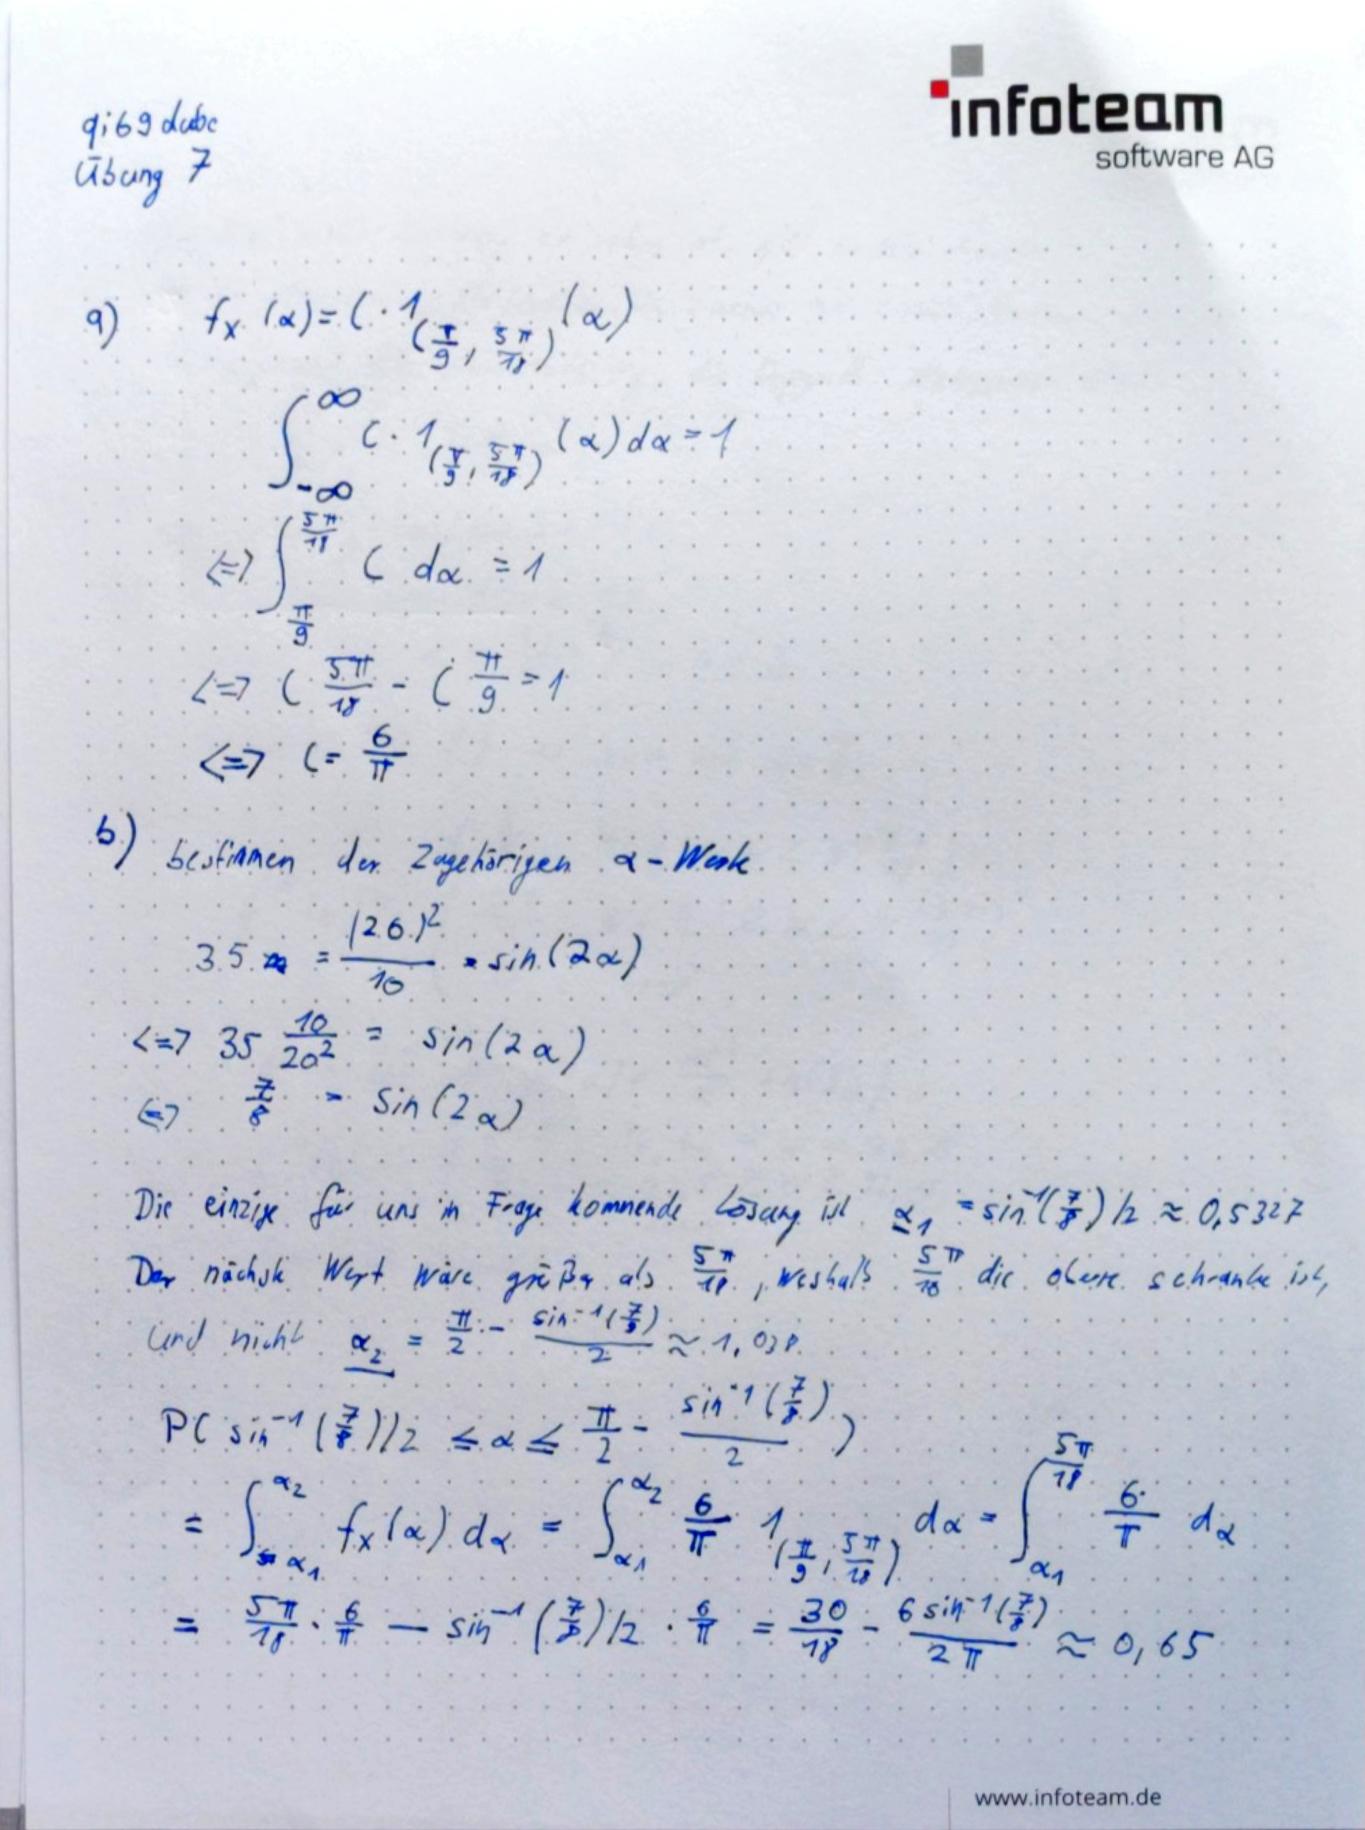 infoteam
software AG
qi69dubc
Übung 7
a) f_X (α) = C · 1_(π/9, 5π/18) (α)
∫_-∞^∞ C · 1_(π/9, 5π/18) (α) dα = 1
<=> ∫_π/9^5π/18 C dα = 1
<=> C 5π/18 - C π/9 = 1
<=> C = 6/π
b) bestimmen der Zugehörigen α-Werte
35 = (20)²/10 · sin(2α)
<=> 35 10/20² = sin(2α)
<=> 7/8 = sin(2α)
Die einzige für uns in Frage kommende Lösung ist α₁ = sin⁻¹(7/8)/2 ≈ 0,5327
Der nächste Wert wäre größer als 5π/18, weshalb 5π/18 die obere schranke ist,
und nicht α₂ = π/2 - sin⁻¹(7/8)/2 ≈ 1,038
P( sin⁻¹(7/8)/2 ≤ α ≤ π/2 - sin⁻¹(7/8)/2 )
= ∫_α₁^α₂ f_X(α) dα = ∫_α₁^α₂ 6/π 1_(π/9, 5π/18) dα = ∫_α₁^5π/18 6/π dα
= 5π/18 · 6/π - sin⁻¹(7/8)/2 · 6/π = 30/18 - 6 sin⁻¹(7/8)/2π ≈ 0,65
www.infoteam.de